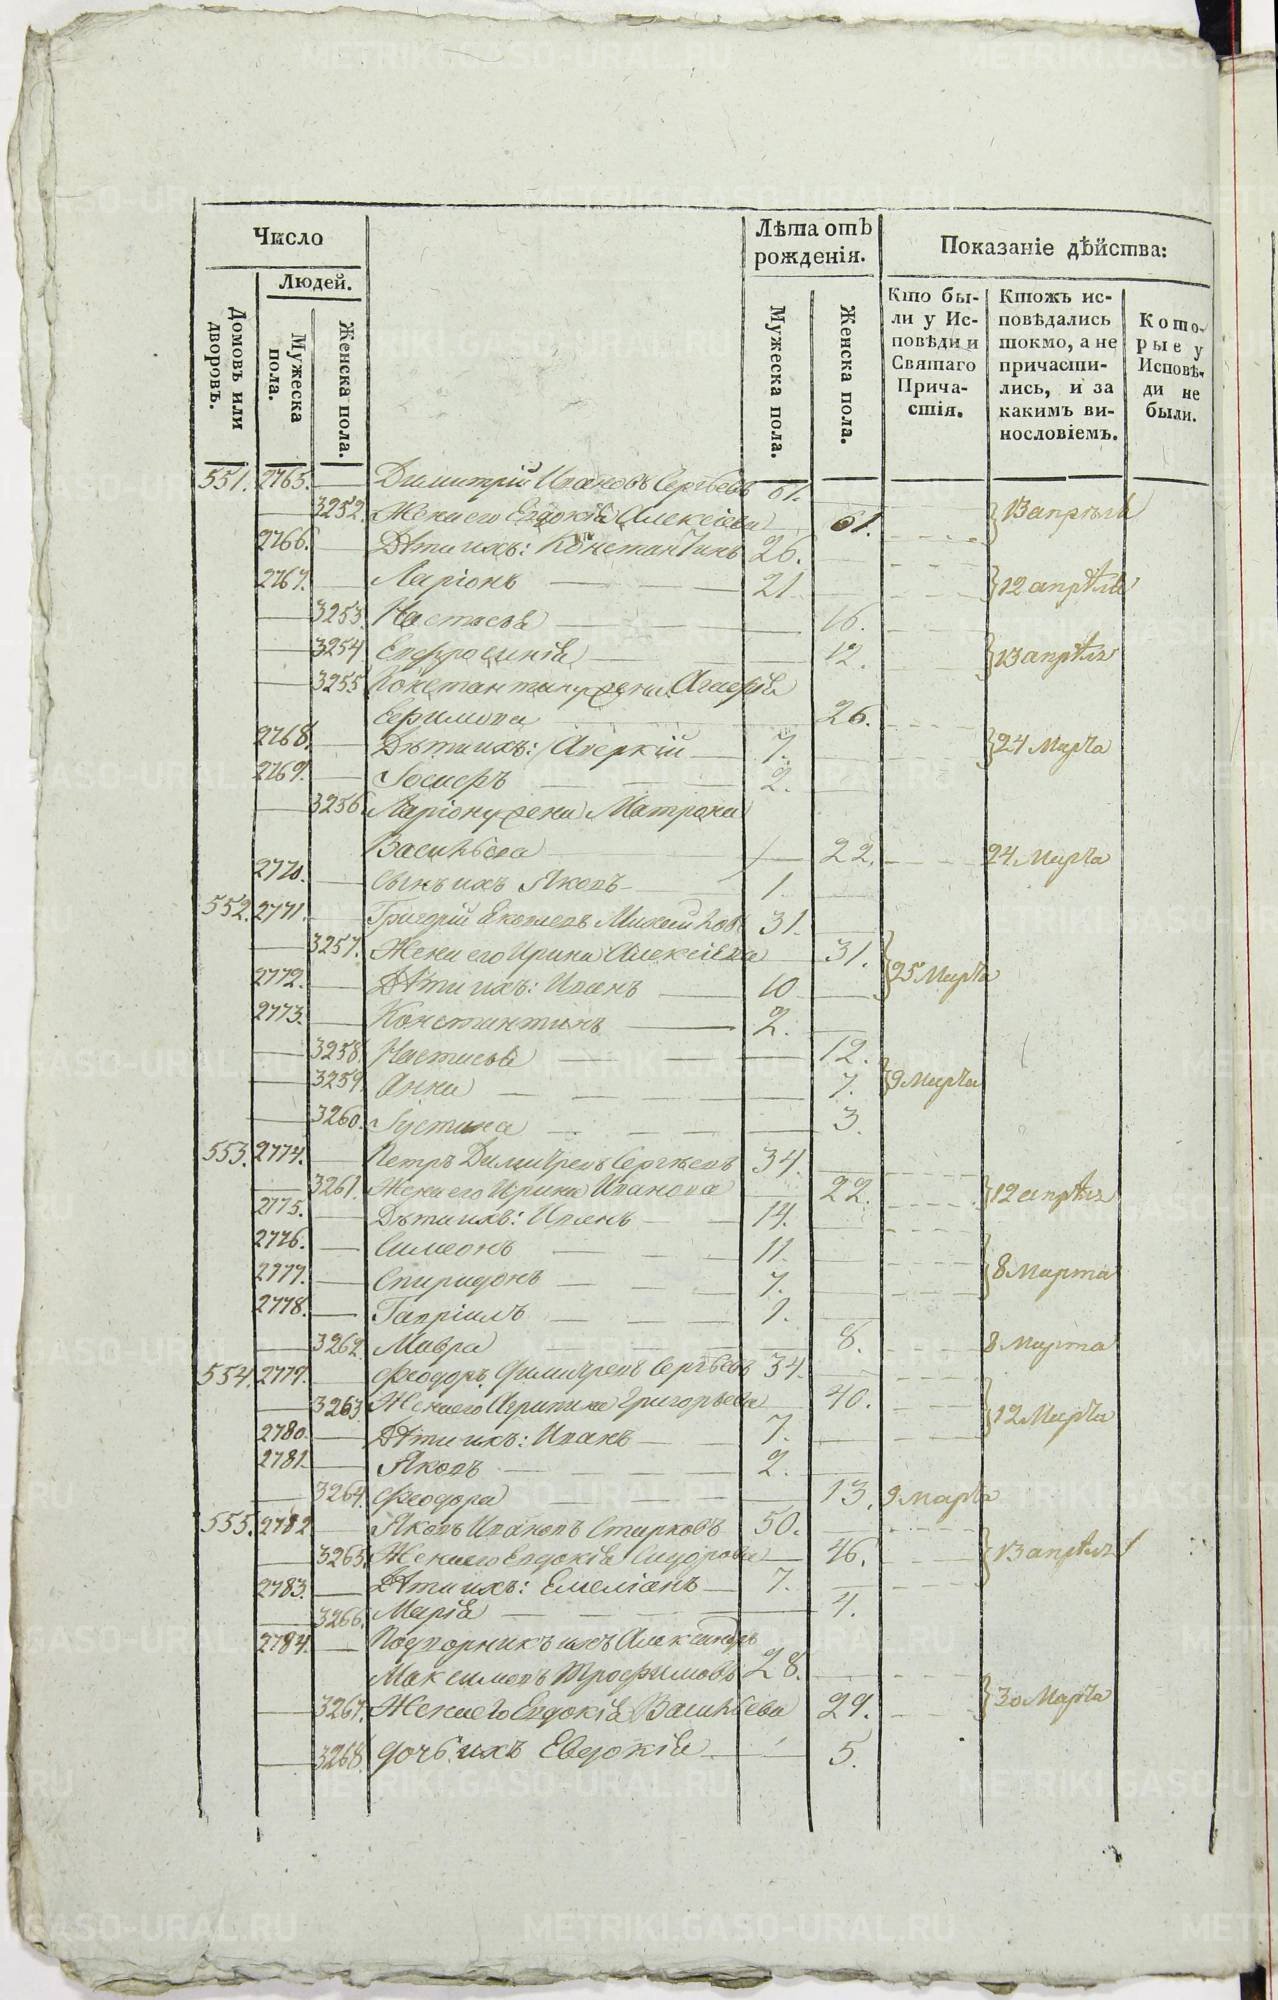 Число
Людей.
Домовъ или дворовъ.
Мужеска пола.
Женска пола.
Лѣта отъ рожденія.
Мужеска пола.
Женска пола.
Показаніе дѣйства:
Кто бы-
ли у Ис-
повѣди и
Святаго
Прича-
стія.
Ктожъ ис-
повѣдались
токмо, а не
причасти-
лись, и за
какимъ ви-
нословіемъ.
Кото-
рые у
Исповѣ-
ди не
были.
551. 2765. Димитрій Ивановъ Сергѣевъ 61.
3252. Жена его Евдокія Алексіева 61. 13 апрѣля
2766. Дѣти ихъ: Константинъ 26.
2767. Ларіонъ 21 12 апрѣля
3253. Настасья 16.
3254 Евфросинія 12. 13 апрѣля
3255 Константину жена Агафія
Ефимова 26.
2768. Дѣти ихъ: Аверкій 7. 24 Марта
2769. Іосифъ 2.
3256 Ларіону жена Матрона
Васильева 22. 24 Марта
2770. Сынъ ихъ Яковъ 1.
552. 2771. Григорій Михайловъ 31.
3257. Жена его Ирина Алексіева 31. 25 Марта
2772. Дѣти ихъ: Иванъ 10
2773. Константинъ 2.
3258. Настасья 12.
3259. Анна 7. 9 Марта
3260. Іустина 3.
553. 2774. Петръ Димитревъ Сергѣевъ 34.
3261. Жена его Ирина Иванова 22. 12 апрѣля
2775. Дѣти ихъ: Иванъ 14.
2776. Симеонъ 11.
2777. Спиридонъ 7. 8 Марта
2778. Гавріилъ 1.
3262. Мавра 8. 8 Марта
554. 2779. Феодоръ Димитревъ Сергѣевъ 34.
3263. Жена его Агрипина Григорьева 40. 12 Марта
2780. Дѣти ихъ: Иванъ 7.
2781. Яковъ 2.
3264. Феодора 13. 9 Марта
555. 2782 Яковъ Ивановъ Старковъ 50.
3265. Жена его Евдокія Сидорова 46. 13 апрѣля
2783. Дѣти ихъ: Емеліанъ 7.
3266. Марія 4.
2784. Подворникъ ихъ Александръ
Максимовъ Трофимовъ 28.
3267. Жена его Евдокія Васильева 29. 30 Марта
3268. дочь ихъ Евдокія 5.
METRIKI.GASO-URAL.RU